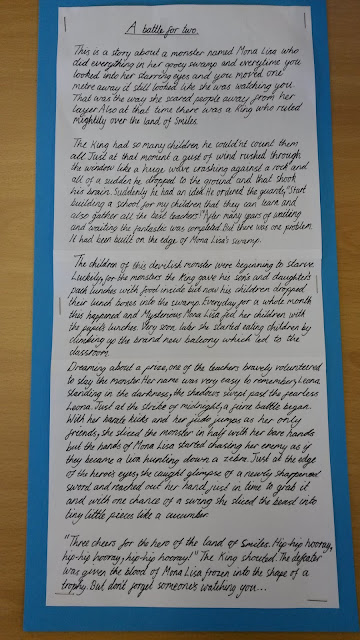 A battle for two.
This is a story about a monster named Mona Lisa who
did everything in her gooey swamp and everytime you
looked into her starring eyes and you moved one
metre away it still looked like she was watching you.
That was the way she scared people away from her
layer. Also at that time there was a King who ruled
mightily over the land of Smiles.
The King had so many children he could'nt count them
all. Just at that moment a gust of wind rushed through
the window like a huge wave crashing against a rock and
all of a sudden he dropped to the ground and that shook
his brain. Suddenly he had an idea. He ordered the guards, "Start
building a school for my children that they can learn and
also gather all the best teachers!" After many years of waiting
and waiting the fantastic was completed. But there was one problem.
It had been built on the edge of Mona Lisa's swamp.
The children of this devilish monster were beginning to starve.
Luckely, for the monster the King gave his sons and daughters
pack lunches with food inside but now his children dropped
their lunch boxes into the swamp. Everyday for a whole month
this happened and Mysterious Mona Lisa fed her children with
the pupil's lunches. Very soon, later she started eating children by
climbing up the brand new balcony which led to the
classroom.
Dreaming about a prize, one of the teachers bravely volunteered
to slay the monster. Her name was very easy to remember, Leona.
Standing in the darkness, the shadows swept past the fearless
Leona. Just at the stroke of midnight, a fierce battle began.
With her karate kicks and her judo jumps as her only
friends, she sliced the monster in half with her bare hands
but the hands of Mona Lisa started chasing her enemy as if
they became a lion hunting down a zebra. Just at the edge
of the hero's eyes, she caught glimpse of a newly sharpened
sword and reached out her hand just in time to grab it
and with one chance of a swing she sliced the beast into
tiny little pieces like a cucumber.
"Three cheers for the hero of the land of Smiles. Hip-hip hooray,
hip-hip hooray, hip-hip hooray!" The King shouted. The defeater
was given the blood of Mona Lisa frozen into the shape of a
trophy. But don't forget someone's watching you...